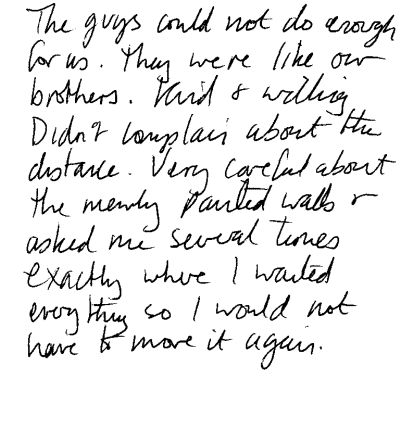 The guys could not do enough
for us. They were like our
brothers. Kind & willing
Didn't complain about the
distance. Very careful about
the newly painted walls &
asked me several times
exactly where I wanted
everything so I would not
have to move it again.